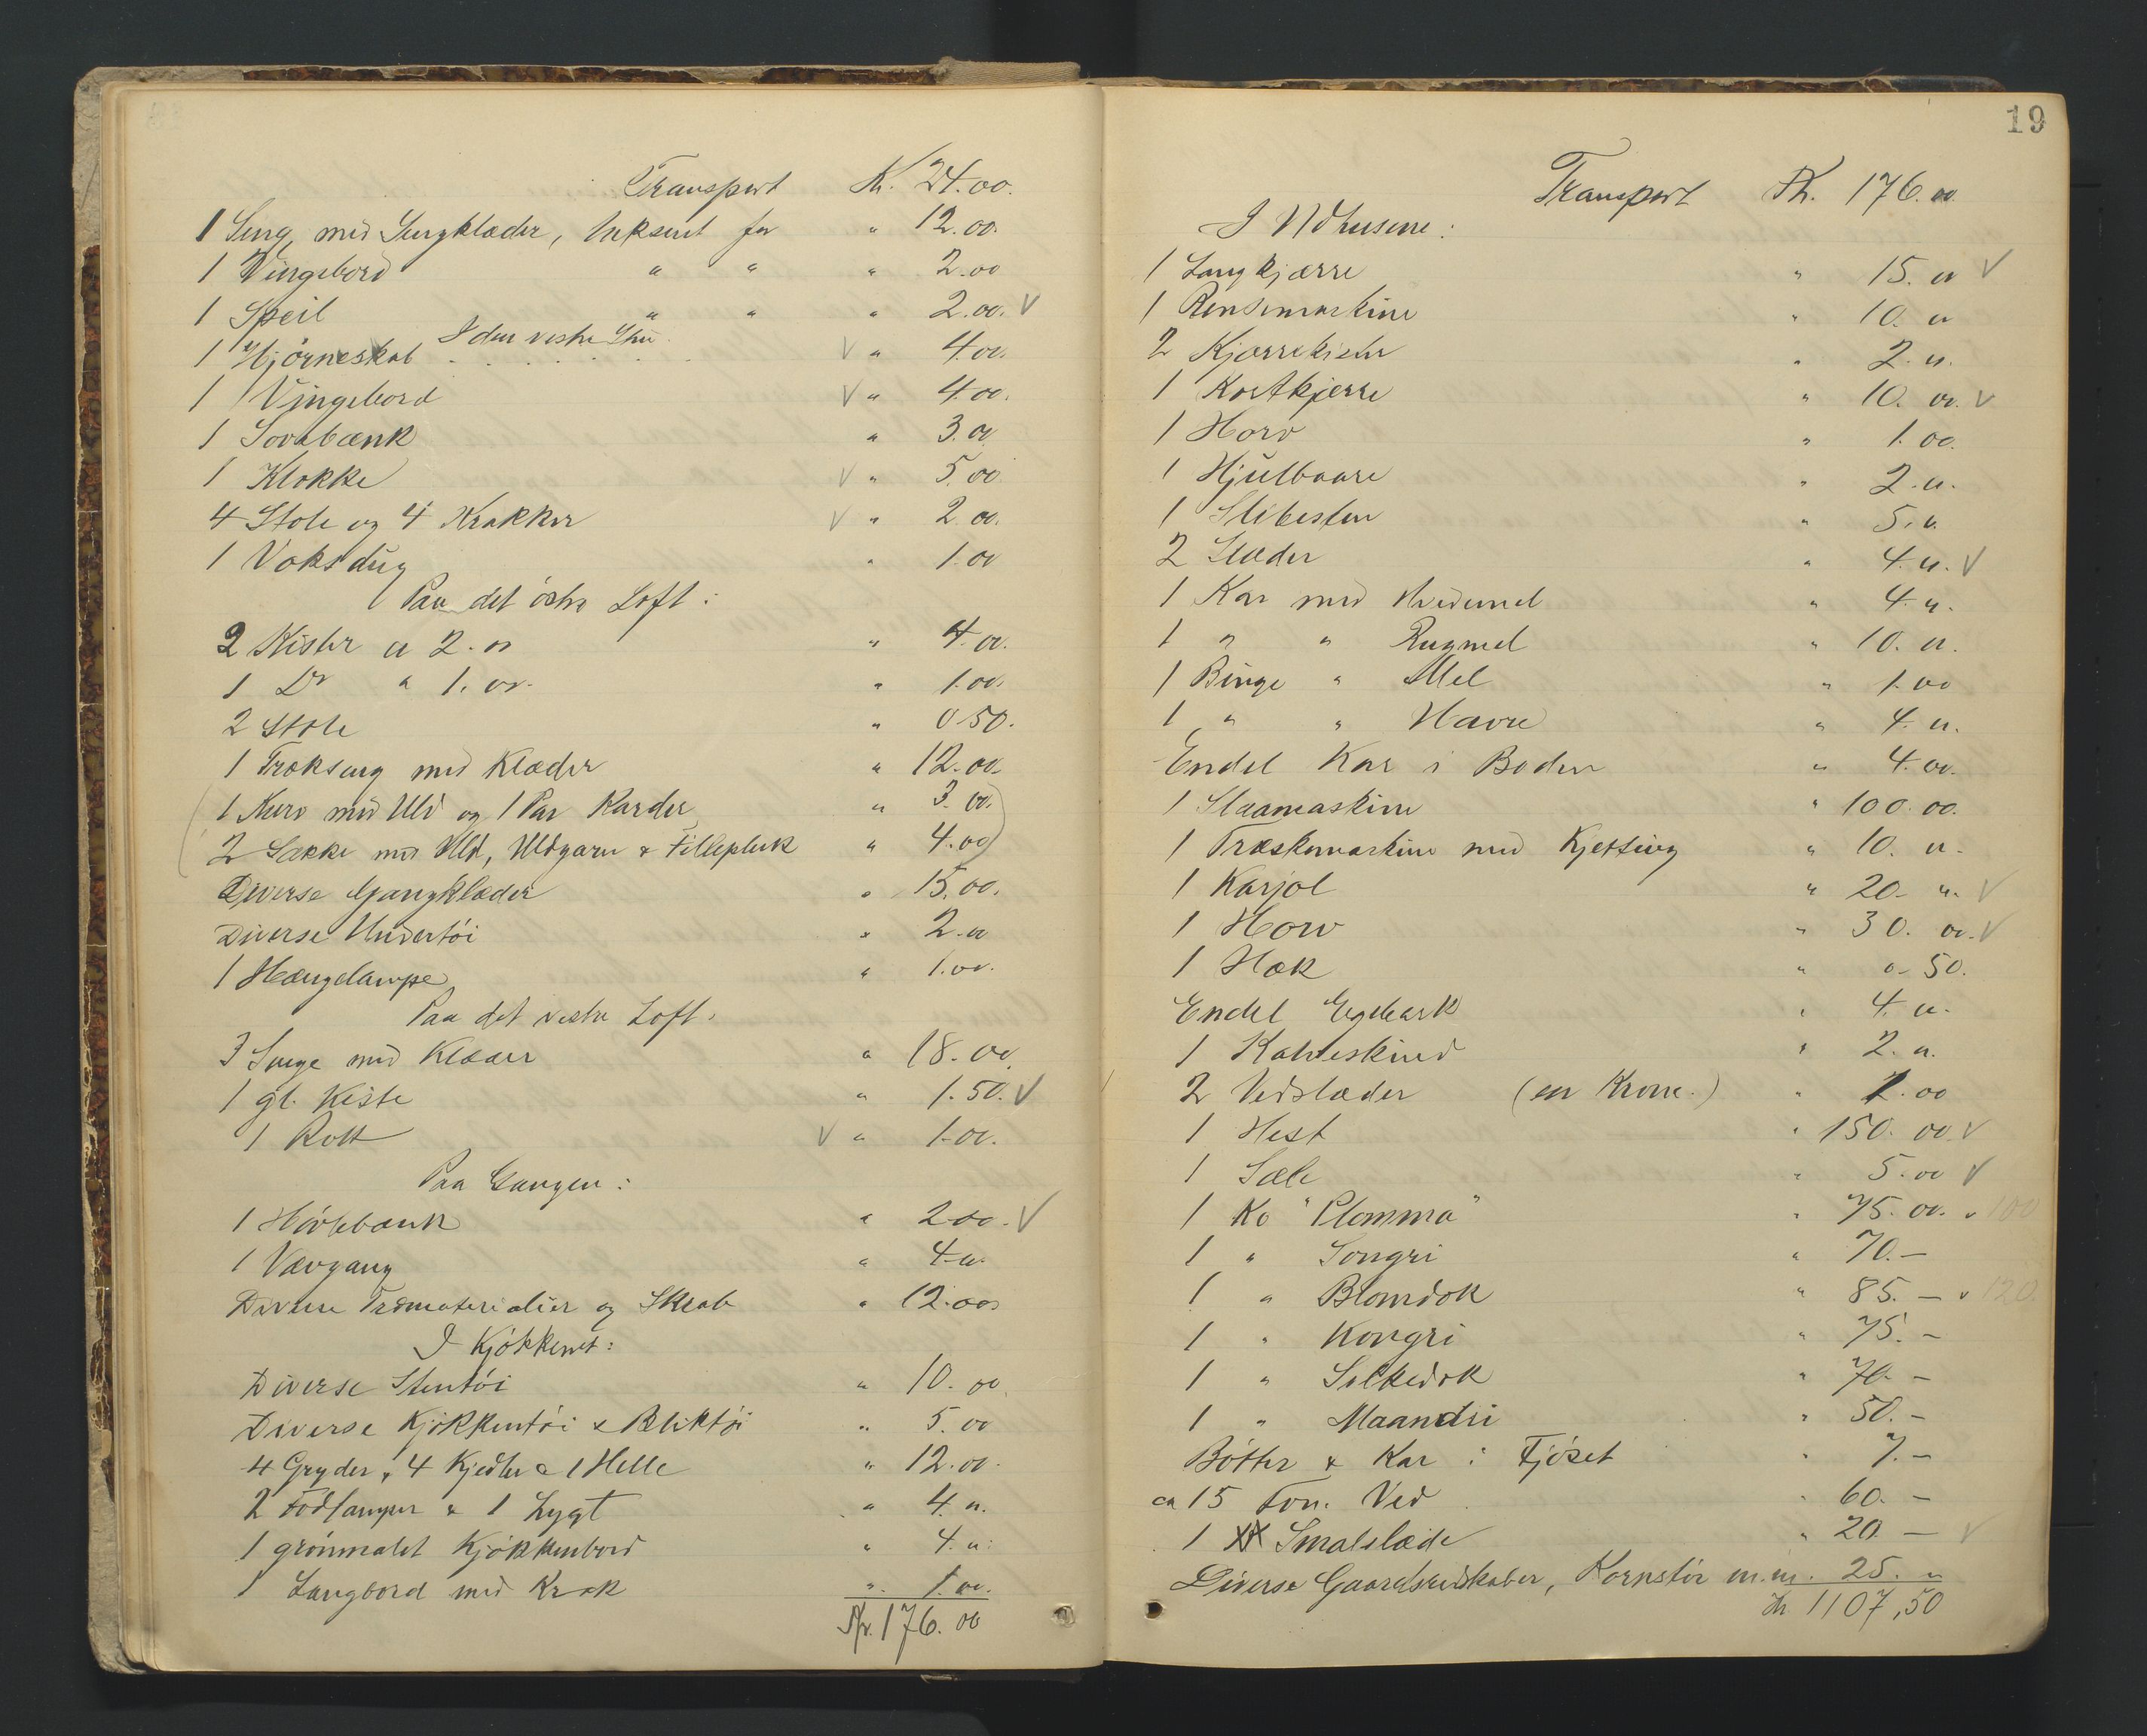 Transport Kr. 24.00.
1 Seng, med Sengklæder, taksert for " 12.00.
1 Vingebord " " " 2.00
1 Speil " " " 2.00. V
I den vestre Stue
1 Hjörneskab . . . . . . V " 4.00.
1 Vingebord V " 4.00.
1 Sovebænk " 3.00
1 Klokke V " 5.00
4 Stole og 4 Krakker V " 2.00.
1 Voksdug " 1.00
Paa det östre Loft:
2 Kister a 2.00 " 4.00.
1 Do a 1.00. " 1.00.
2 Stole " 0.50.
1 Træksseng med Klæder " 12.00.
(1 Kurv med Uld og 1 Par Karder " 3.00.)
(2 Sække med Uld, Uldgarn & Fillepluk " 4.00)
Diverse Gangklæder " 15.00.
Diverse Undertöi " 2.00
1 Hængelampe " 1.00.
Paa det vestre Loft.
3 Senge med Klæder " 18.00.
1 gl. Kiste " 1.50. V
1 Rok V " 1.00.
Paa Gangen:
1 Hövlebænk " 2.00. V
1 Vævgang " 4.00.
Diverse Træmaterialier og Skrab " 12.00
I Kjökkenet:
Diverse Stentöi " 10.00
Diverse Kjökkentöi & Bliktöi " 5.00
4 Gryder, 4 Kjedler & 1 Helle " 12.00.
2 Fodlamper & 1 Lygt " 4.00.
1 grönmalet Kjökkenbord " 4.00.
1 Langbord med Krak " 1.00.
Kr. 176.00
19
Transport Kr. 176.00
I Udhusene:
1 Langkjærre " 15.00 V
1 Rensemaskine " 10.00
2 Kjærrekister " 2.00.
1 Kortkjerre " 10.00. V
1 Horv " 1.00.
1 Hjulbaare " 2.00.
1 Slibesten " 5.00.
2 Slæder " 4.00. V
1 Kar med Hvedemel " 4.00.
1 " " Rugmel " 10.00.
1 Binge " Mel " 1.00
1 " " Havre " 4.00.
Endel Kar i Boden " 4.00.
1 Slaamaskine " 100.00.
1 Træskemaskine med Kjetting " 10.00.
1 Karjol " 20.00. V
1 Horv " 30.00. V
1 Hæk " 0.50.
Endel Egebark " 4.00.
1 Kalveskind " 2.00.
2 Vedslæder (en Krone.) " 1.00
1 Hest " 150.00 V
1 Sæle " 5.00 V
1 Ko "Plomma" " 75.00. v 100
1 " Songri " 70.–
1 " Blomdok " 85.– v 120.
1 " Kongri " 75.–
1 " Silkedok " 70.–
1 " Maandsi " 50.–
Bötter & Kar i Fjöset " 7.–
ca 15 Fvn. Ved " 60.–
1 Smalslæde " 20.– V
Diverse Gaardsredskaber, Kornstör m.m. 25.00
Kr. 1107,50